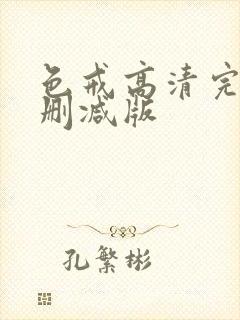 色戒高清完
删减版
孔繁彬